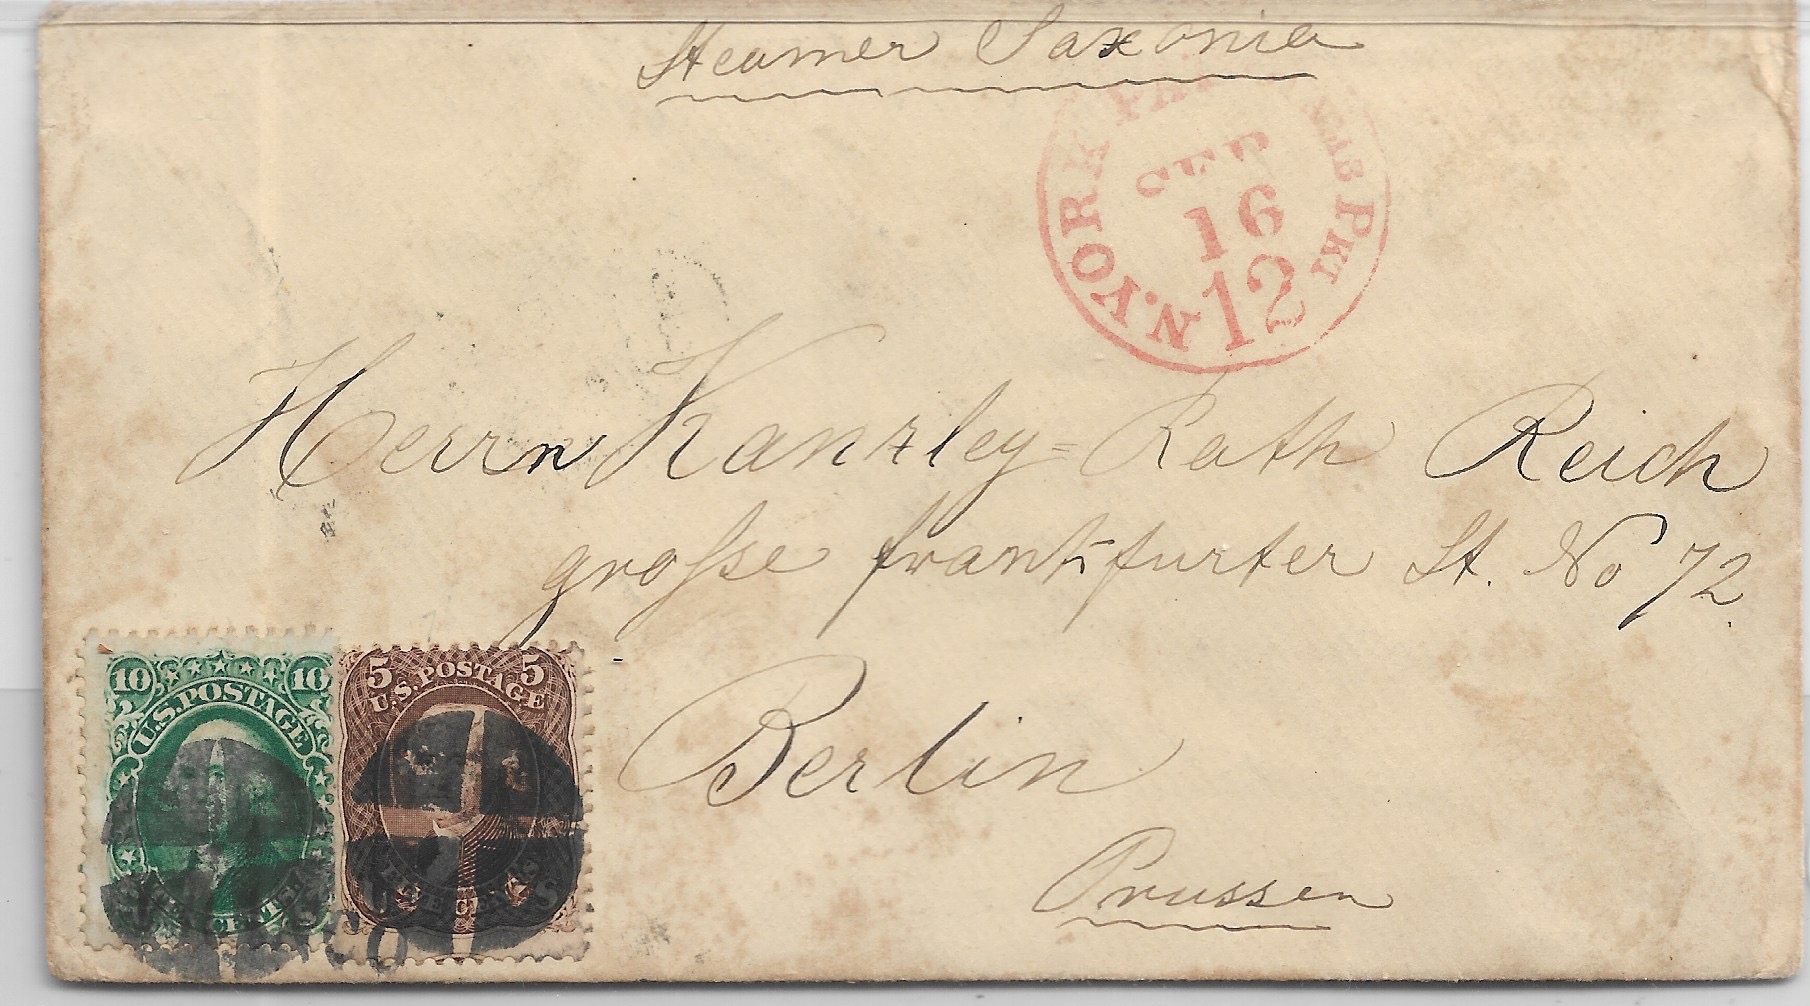 Steamer Saxonia
N. YORK
PKT
SEP
16
12
Herrn Kanzley=Rath Reich
große frankfurter St. No 72
Berlin
Prussen
10 10
U.S. POSTAGE
5 5
U.S. POSTAGE
FIVE CENTS